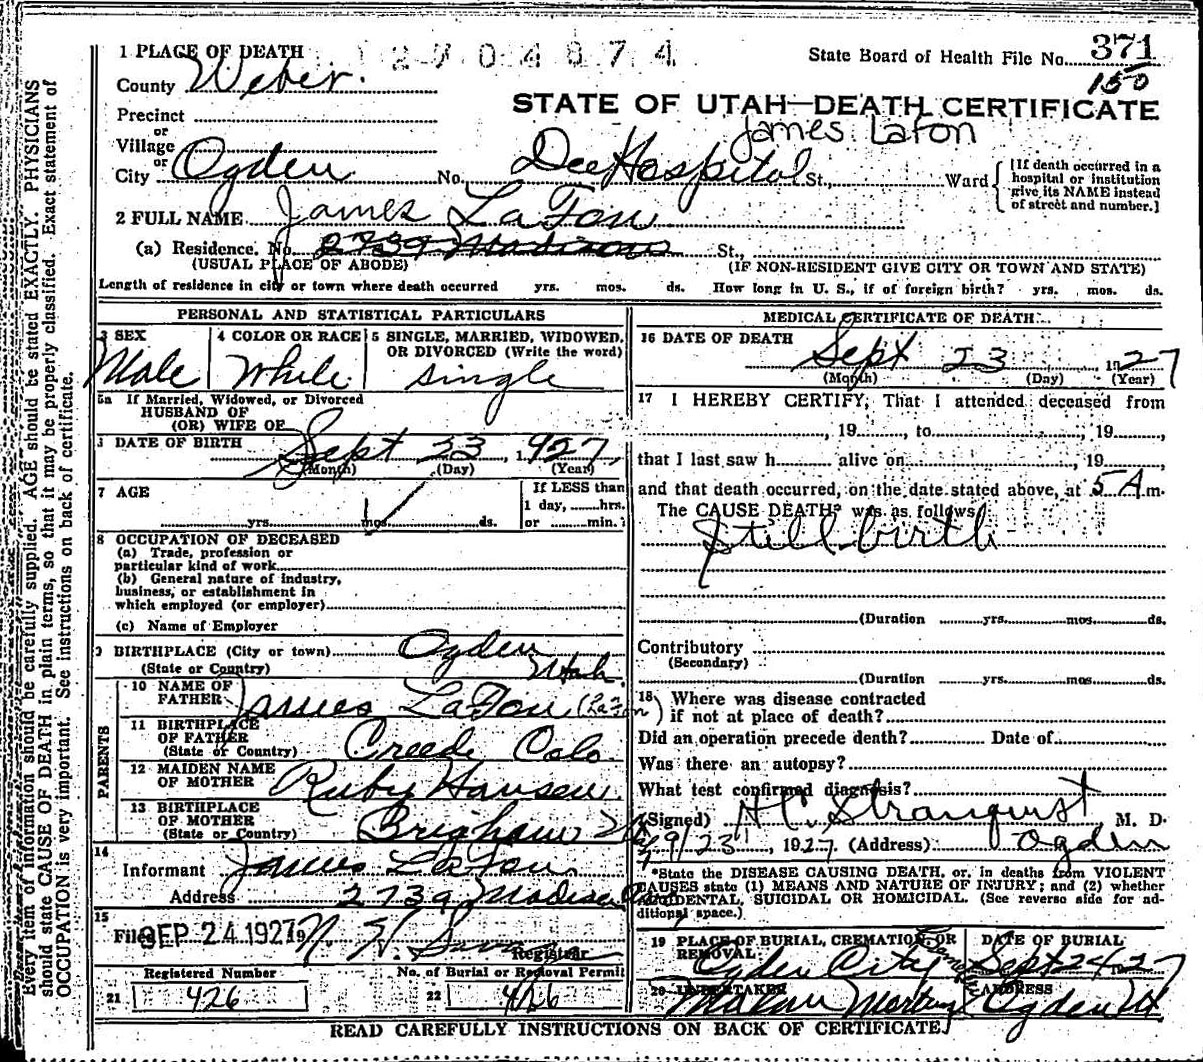 1 PLACE OF DEATH 2704874 State Board of Health File No. 371
County Weber. 150
STATE OF UTAH—DEATH CERTIFICATE
Precinct
James Lafon
or
Village
or
City Ogden No. Dee Hospital St., Ward [If death occurred in a hospital or institution give its NAME instead of street and number.]
2 FULL NAME James LaFon
(a) Residence. No. 2739 Madison St.,
(USUAL PLACE OF ABODE) (IF NON-RESIDENT GIVE CITY OR TOWN AND STATE)
Length of residence in city or town where death occurred yrs. mos. ds. How long in U. S., if of foreign birth? yrs. mos. ds.
PERSONAL AND STATISTICAL PARTICULARS
3 SEX 4 COLOR OR RACE 5 SINGLE, MARRIED, WIDOWED,
OR DIVORCED (Write the word)
Male White single
5a If Married, Widowed, or Divorced
HUSBAND OF
(OR) WIFE OF
DATE OF BIRTH Sept 23 1927
(Month) (Day) (Year)
7 AGE If LESS than
1 day, hrs.
yrs. mos. ds. or min.
8 OCCUPATION OF DECEASED
(a) Trade, profession or
particular kind of work
(b) General nature of industry,
business, or establishment in
which employed (or employer)
(c) Name of Employer
9 BIRTHPLACE (City or town) Ogden
(State or Country) Utah
PARENTS
10 NAME OF
FATHER James LaFon (Lafon)
11 BIRTHPLACE
OF FATHER
(State or Country) Creede Colo
12 MAIDEN NAME
OF MOTHER Ruby Hansen
13 BIRTHPLACE
OF MOTHER
(State or Country) Brigham
14
Informant James LaFon
Address 2739 Madison
15
Filed SEP 24 1927 19 N. H. Savage
Registrar
Registered Number No. of Burial or Removal Permit
21 426 22 426
MEDICAL CERTIFICATE OF DEATH
16 DATE OF DEATH
Sept 23 1927
(Month) (Day) (Year)
17 I HEREBY CERTIFY, That I attended deceased from
, 19 , to , 19 ,
that I last saw h alive on , 19 ,
and that death occurred, on the date stated above, at 5 A m.
The CAUSE DEATH* was as follows
Still birth
(Duration yrs. mos. ds.
Contributory
(Secondary)
(Duration yrs. mos. ds.
18 Where was disease contracted
if not at place of death?
Did an operation precede death? Date of
Was there an autopsy?
What test confirmed diagnosis?
(Signed) H.C. Stranquist M. D.
9/23 1927. (Address) Ogden
*State the DISEASE CAUSING DEATH, or, in deaths from VIOLENT
CAUSES state (1) MEANS AND NATURE OF INJURY; and (2) whether
ACCIDENTAL, SUICIDAL OR HOMICIDAL. (See reverse side for ad-
ditional space.)
19 PLACE OF BURIAL, CREMATION, OR DATE OF BURIAL
REMOVAL
Ogden City Sept 24 1927
20 UNDERTAKER ADDRESS
Ogden Ut
READ CAREFULLY INSTRUCTIONS ON BACK OF CERTIFICATE.
Every item of information should be carefully supplied. AGE should be stated EXACTLY. PHYSICIANS
should state CAUSE OF DEATH in plain terms, so that it may be properly classified. Exact statement of
OCCUPATION is very important. See instructions on back of certificate.